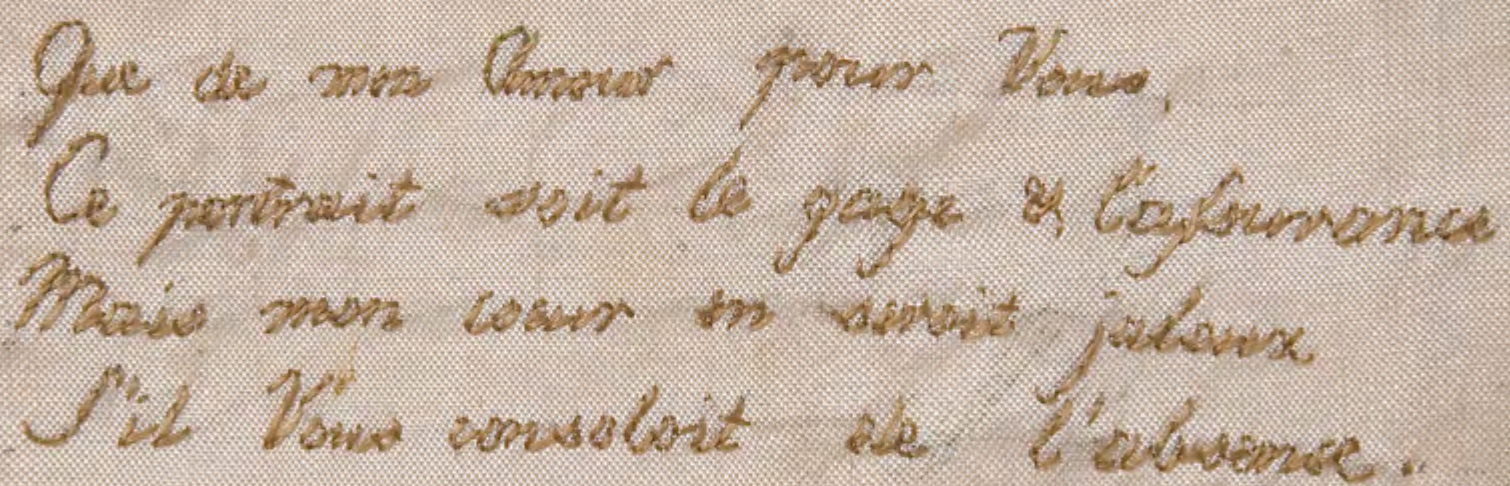 Que de mon Amour pour Vous,
Ce portrait soit le gage & l'aſsurance
Mais mon coeur en seroit jaloux
S'il Vous consoloit de l'absence.